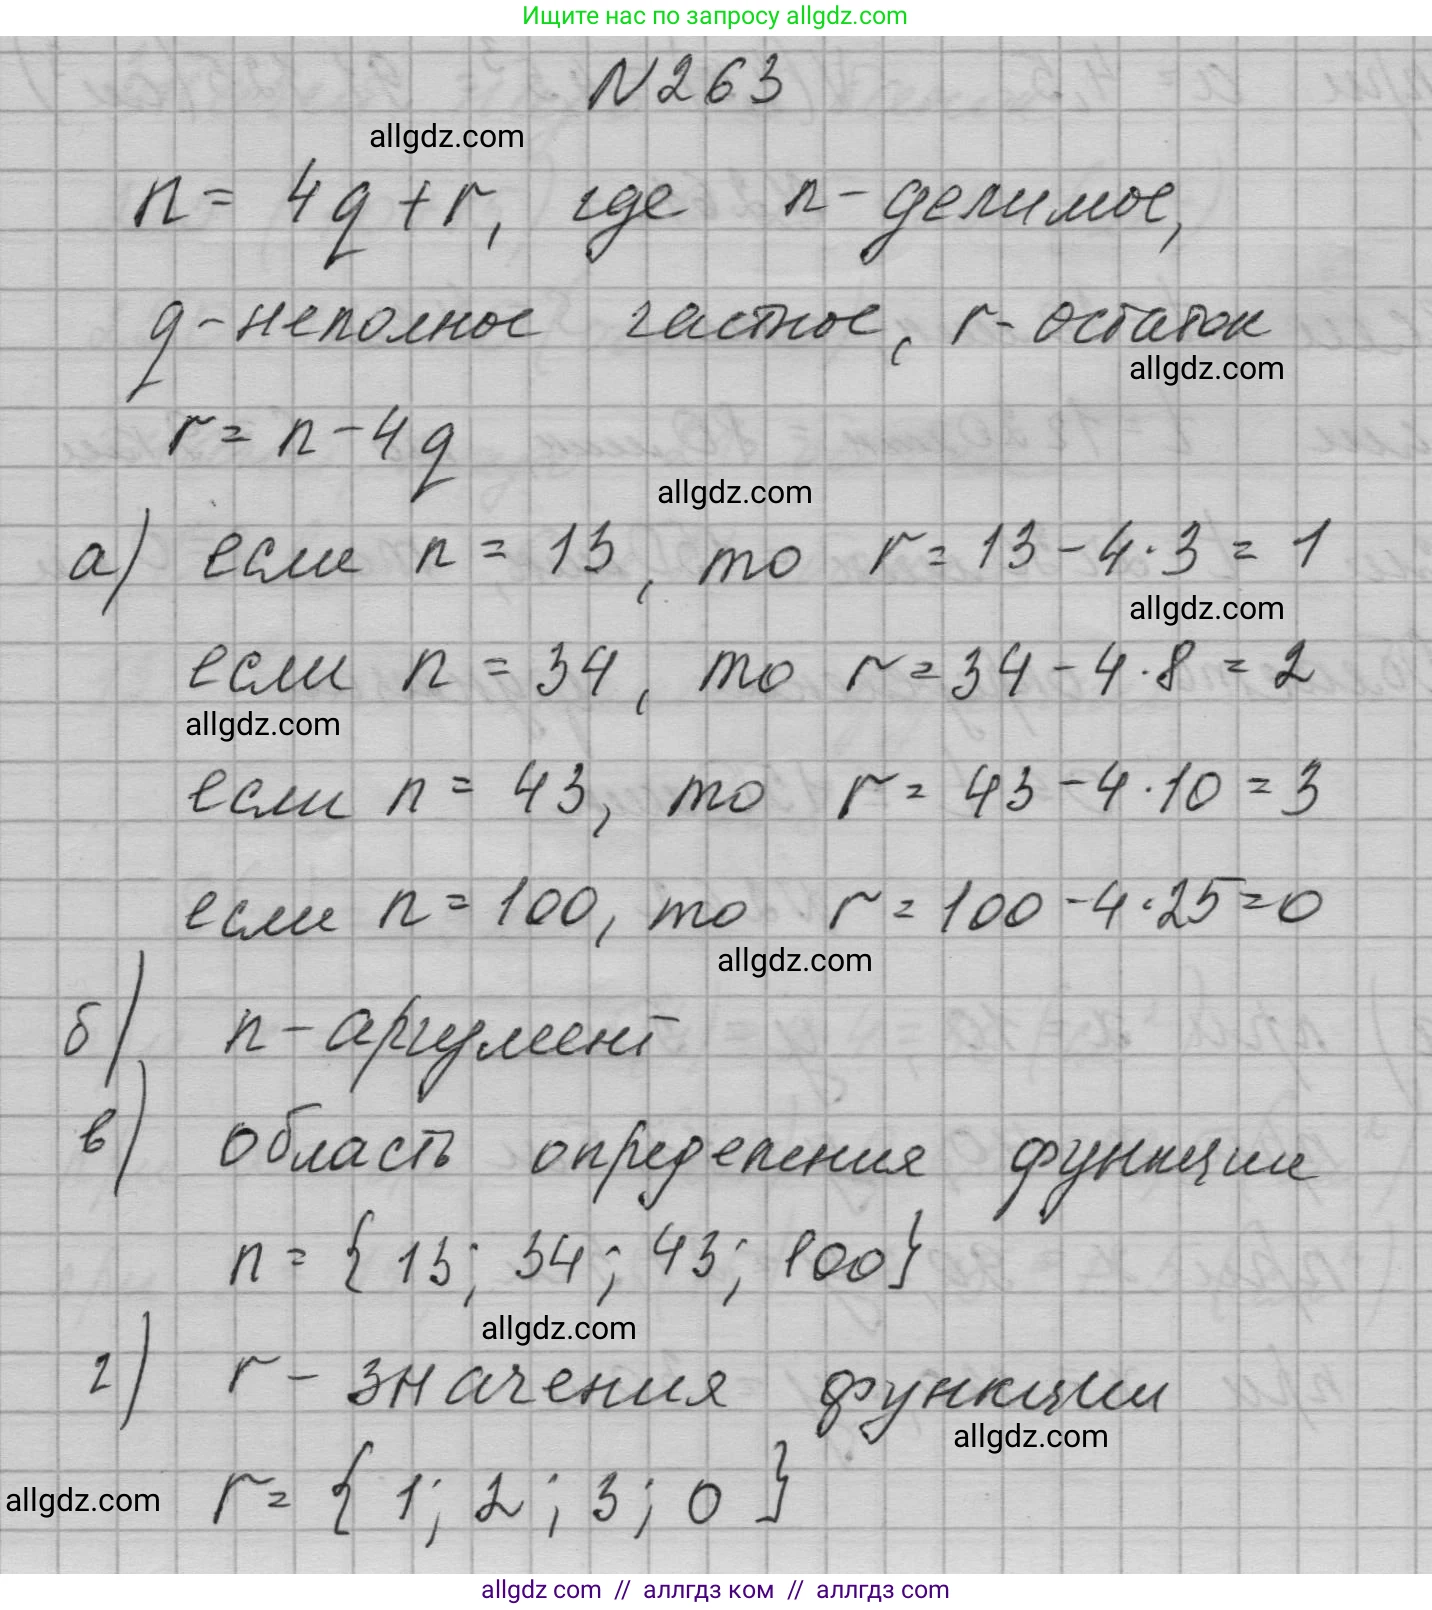 Ищите нас по запросу allgdz.com
N263
allgdz.com
n = 4q + r, где n - делимое,
q - неполное частное, r - остаток
allgdz.com
r = n - 4q
allgdz.com
а) если n = 13, то r = 13 - 4 · 3 = 1
allgdz.com
если n = 34, то r = 34 - 4 · 8 = 2
allgdz.com
если n = 43, то r = 43 - 4 · 10 = 3
если n = 100, то r = 100 - 4 · 25 = 0
allgdz.com
б) n - аргумент
в) область определения функции
n = { 13; 34; 43; 100}
allgdz.com
г) r - значения функции
allgdz.com
allgdz.com r = { 1; 2; 3; 0 }
allgdz com // аллгдз ком // аллгдз com